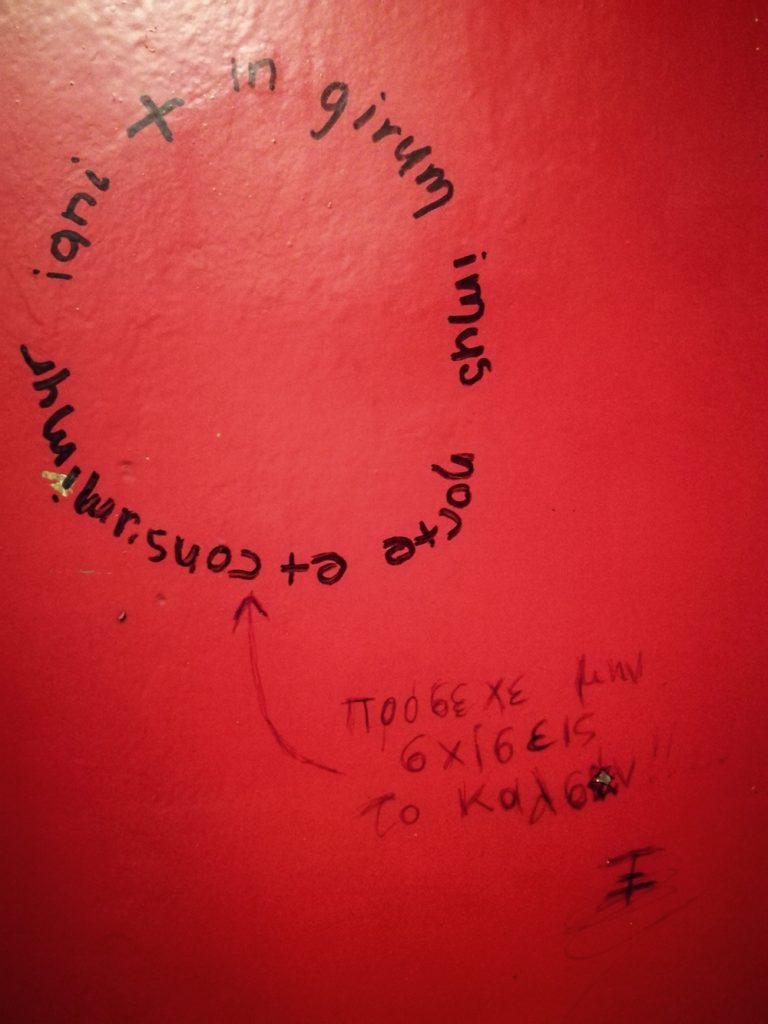 in girum imus nocte et consumimur igni x
Πρόσεχε μην
σχίσεις
το καλσόν!!...